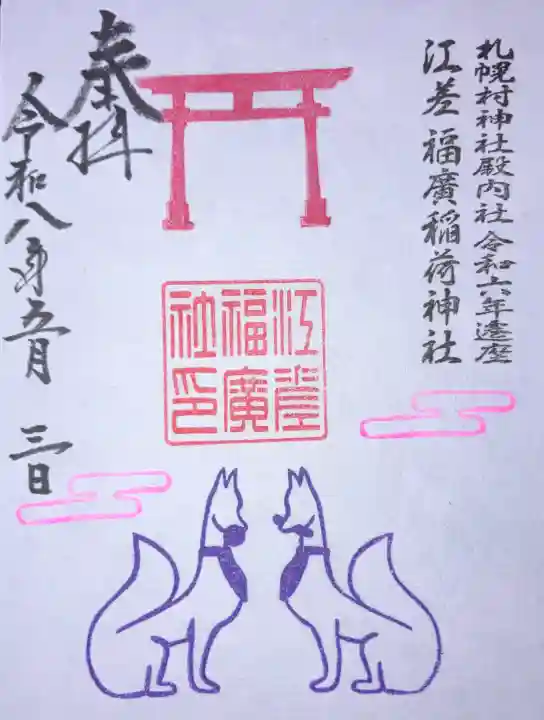 札幌村神社殿内社 令和六年遷座
江差 福廣稲荷神社
奉拝
江差
福廣
社印
令和八年五月 三日